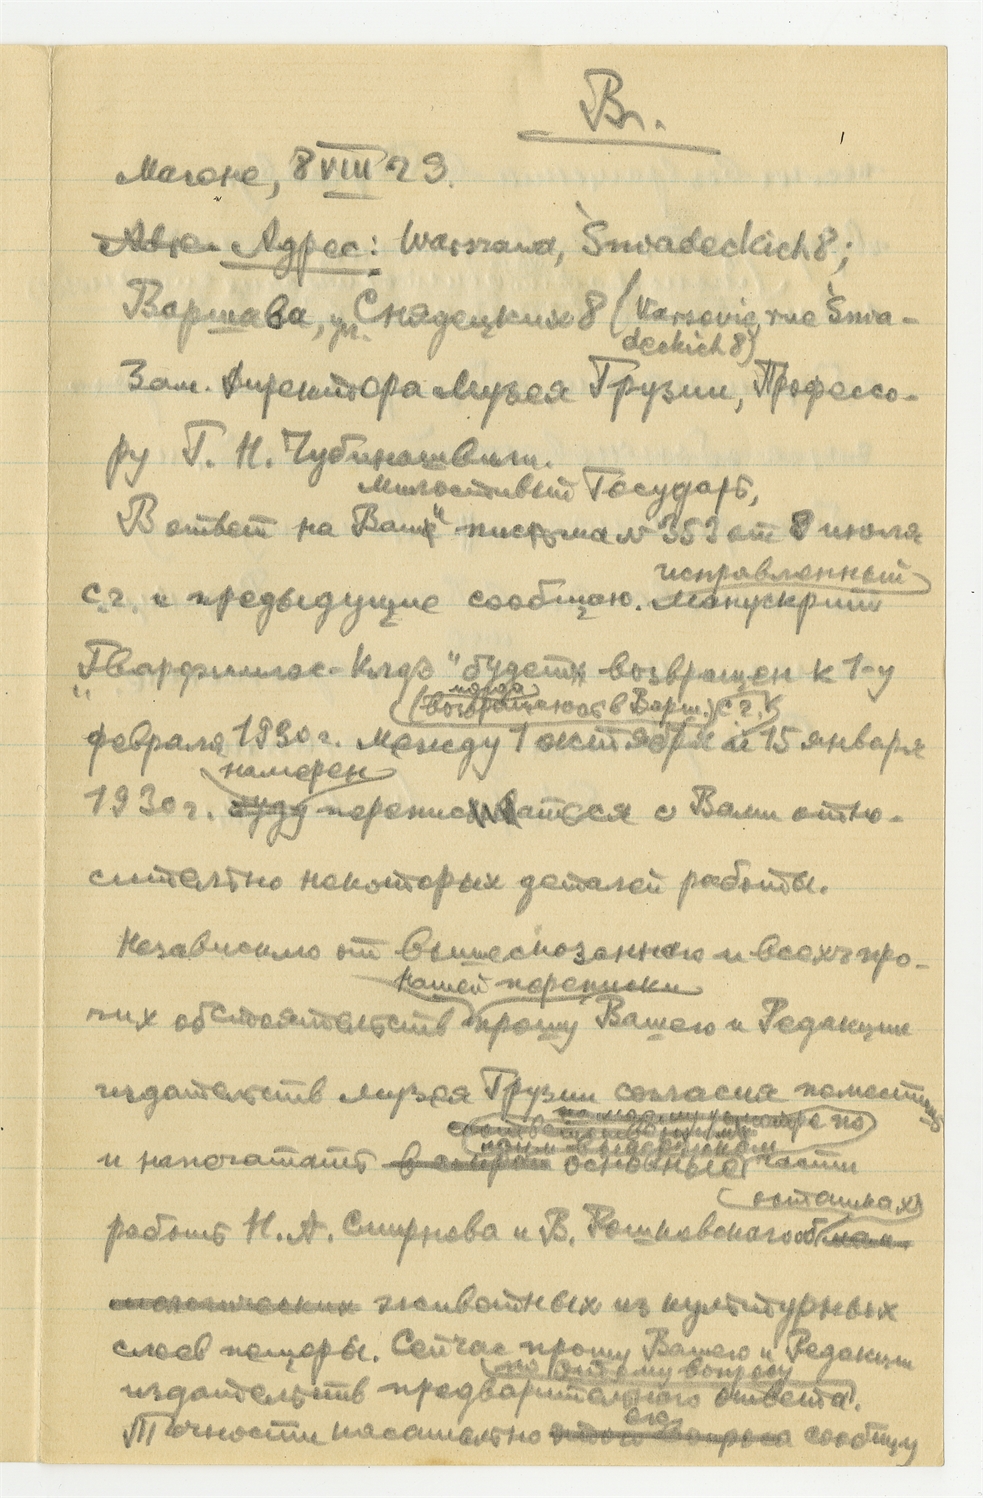 Br.
8 VIII 29.
Адрес: Warszawa, Śniadeckich 8;
Варшава, ул. Снядецких 8 (Varsovie, rue Śnia-
deckich 8)
Зам. Директора Музея Грузии, Профессо-
ру Г. Н. Чубинашвили.
Милостивый Государь,
В ответ на Ваши письма № 353 от 8 июля
исправленный
с.г. и предыдущие сообщаю. Манускрипт
"Гварджилас-Клдэ" будет возвращен к 1-у
(когда
возвращаюсь в Варш.) с.г.
февраля 1930 г. Между 1 октября и 15 января
намерен
1930 г. буду переписываться с Вами отно-
сительно некоторых деталей работы.
Независимо от вышесказанного и всех про-
нашей переписки
чих обстоятельств прошу Вашего и Редакции
издательств Музея Грузии согласия поместить
и напечатать основные части
останках
работ Н. А. Смирнова и В. Рошковского об
животных из культурных
слоев пещеры. Сейчас прошу Вашего и Редакции
по этому вопросу
издательств предварительного ответа.
его
Точности касательно этого вопроса сообщу